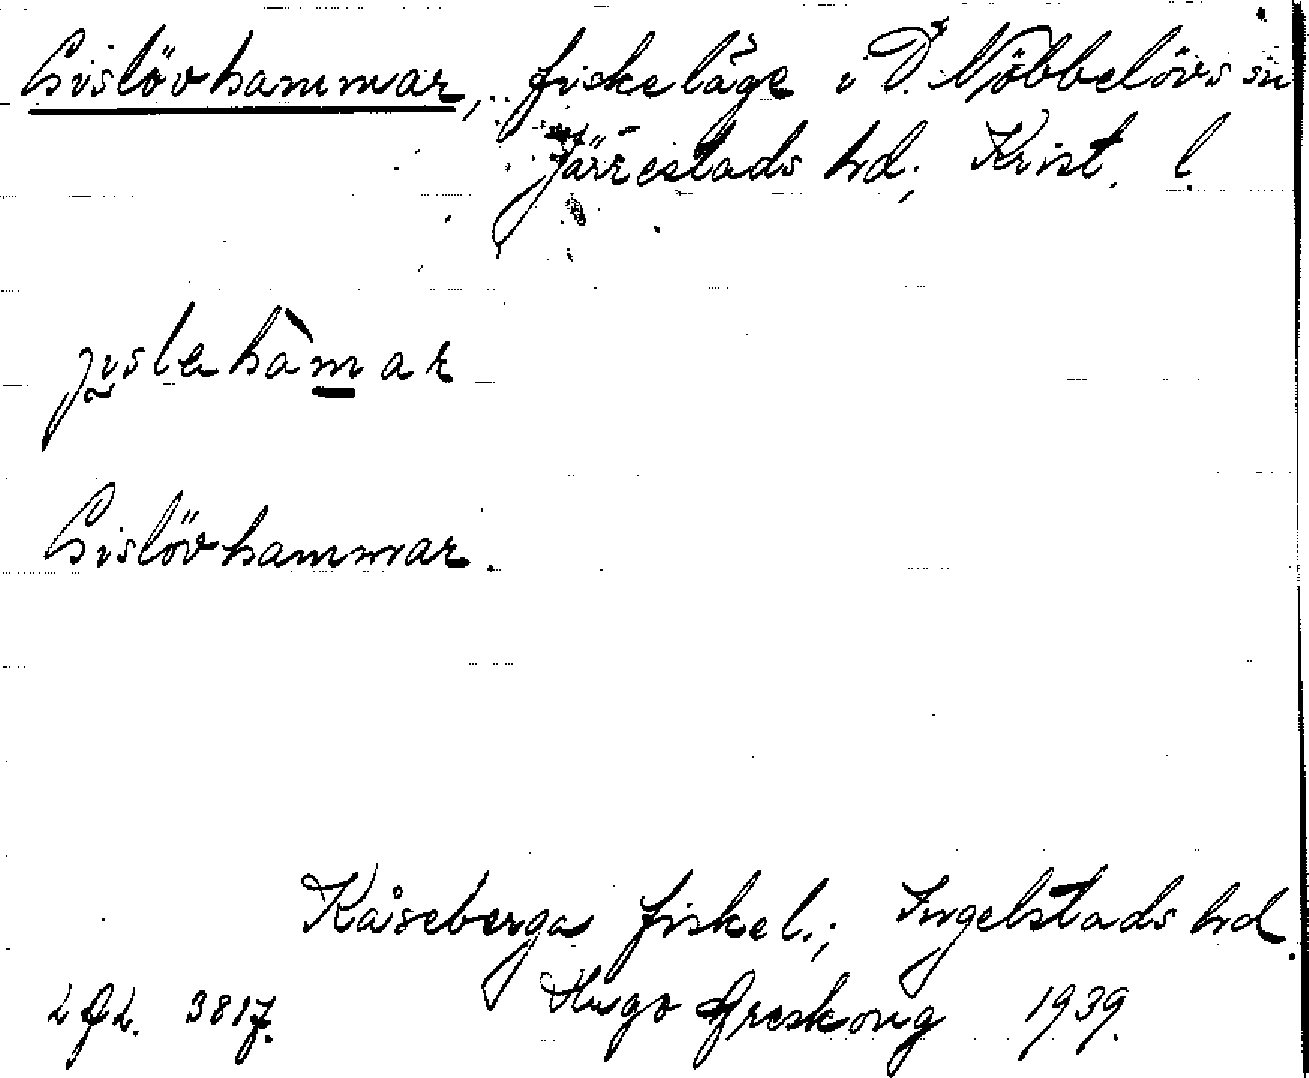 Gislövhammar, fiskeläge i Ö. Nöbbelövs sn
Järrestads hd; Krist. l.
Gislövhammar.
Kåseberga fiskel.; Ingelstads hd.
LGL. 3817. Hugo Areskoug 1939.